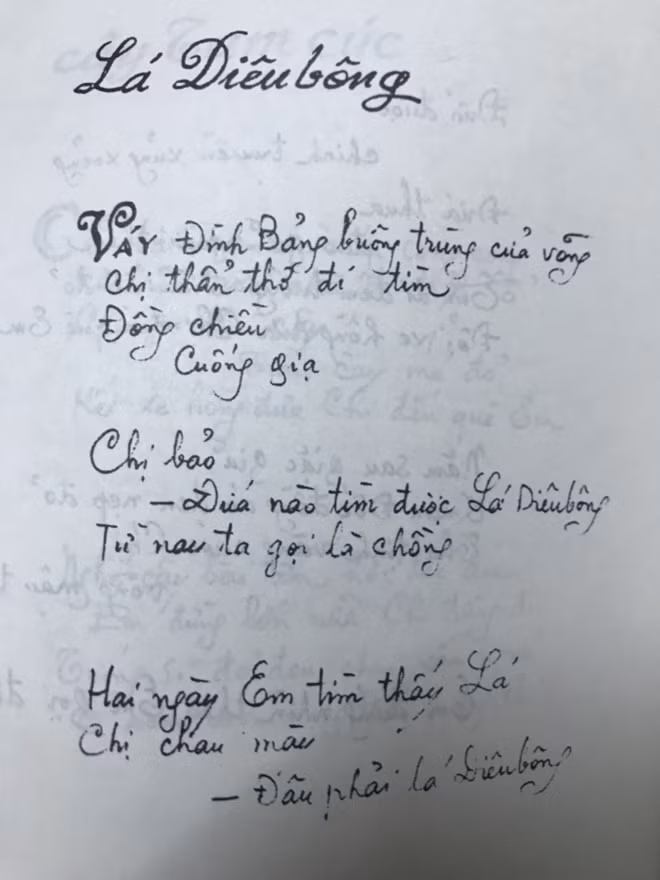 Lá Diêubông
Váy Đình Bảng buông trùng cửa võng
Chị thẩn thơ đi tìm
Đồng chiều
Cuống rạ
Chị bảo
– Đứa nào tìm được Lá Diêubông
Từ nay ta gọi là chồng
Hai ngày Em tìm thấy Lá
Chị chau mày
– Đâu phải lá Diêubông